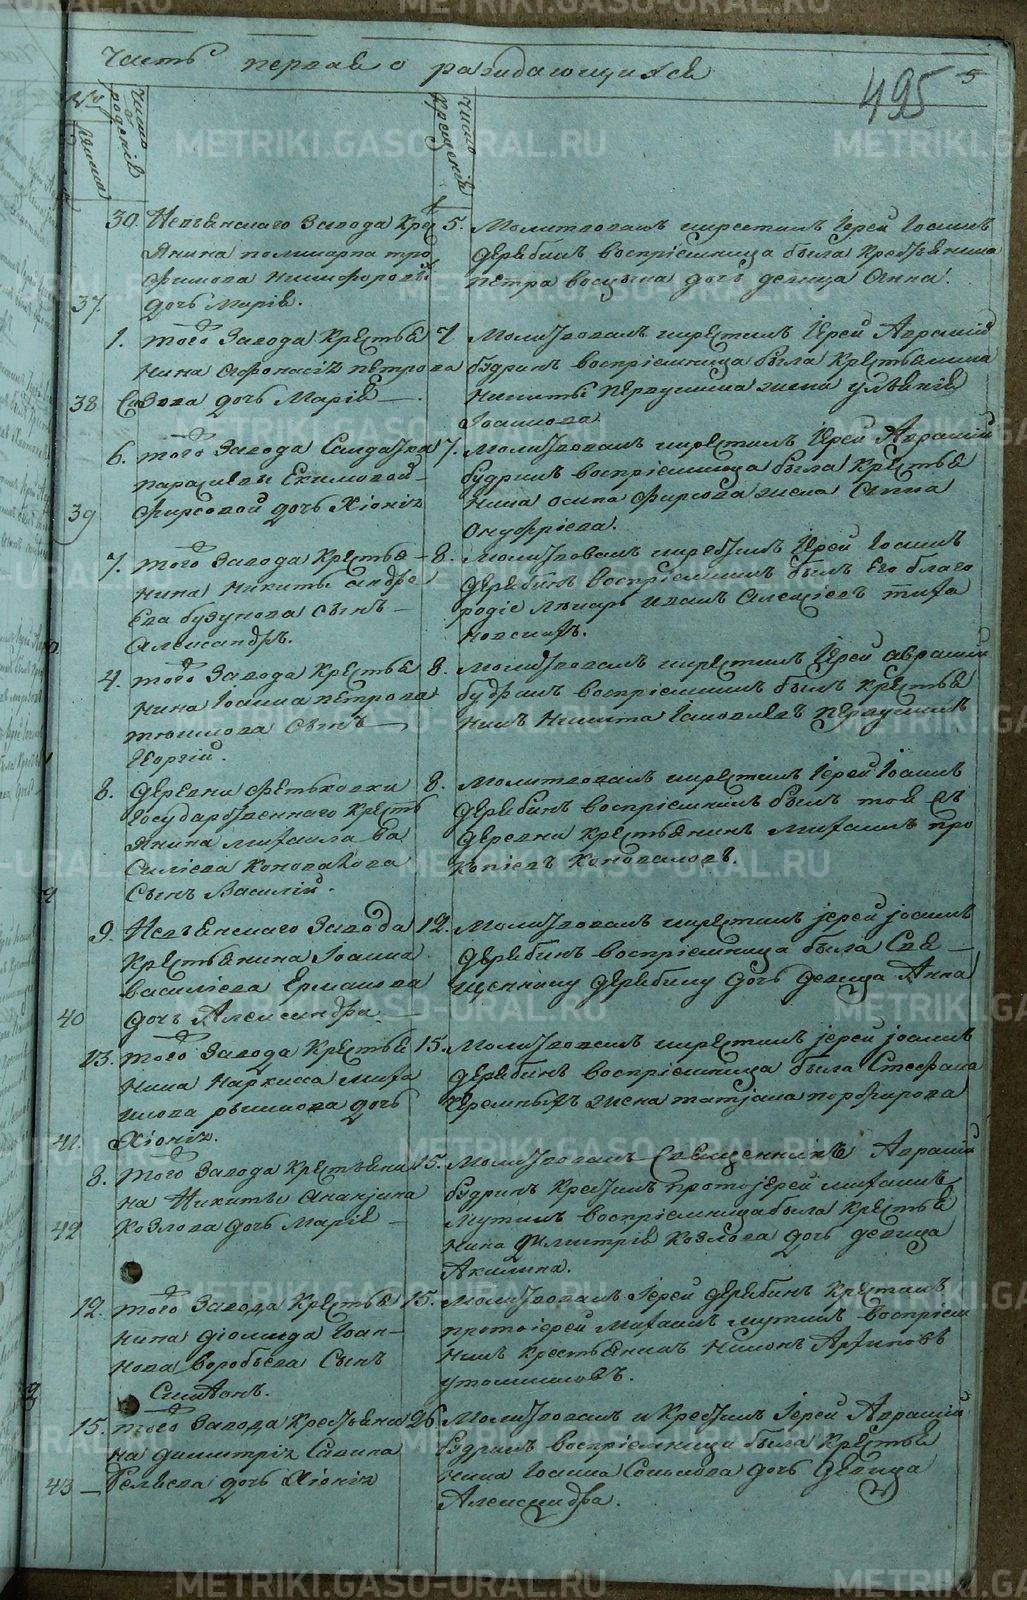 Часть первая о раждающихся
495
5
№
женска
число рожденія
число крещенія
30. Невьянскаго Завода Крес
янина поликарпа тро
фимова Никифорова
37 дочь Марія.
5. Молитвовалъ икрестилъ Іерей Іоаннъ
Дерябинъ воспріемница была Крестьянина
петра дочь девица Анна.
1. того Завода Крестья
нина Афонасія петрова
38 дочь Марія
7 Молитвовалъ икрестилъ Іерей Аврамій
будринъ воспріемница была Крестьянина
Никиты Первушина жена
Іоаннова.
6. того Завода Салдатка
параскевы Екимовой
39 Фирсовой дочь Хіонія
7. Молитвовалъ икрестилъ Іерей Аврамій
будринъ воспріемница была Крестья
нина осипа Фирсова жена Анна
Онуфріева.
7. того Завода Крестья-
нина Никиты андре
ева бузунова сынъ
Александръ.
8. Молитвовалъ икрестилъ Іерей Іоаннъ
Дерябинъ воспріемникъ былъ Его благо
родіе лекарь иванъ Алексіевъ тиха
новскій.
4. того Завода Крестья
нина Іоанна петрова
тюшкова сынъ
Георгій.
8. Молитвовалъ икрестилъ Іерей аврамій
будринъ воспріемникъ былъ Крестья
нинъ Никита Іаковлевъ первушинъ
8. деревни Фетьковки
Государственнаго Кресть
янина михаила Ва
силіева Коновалова
сынъ Василій.
8. Молитвовалъ икрестилъ Іерей Іоаннъ
дерябинъ воспріемникъ былъ тоя съ
деревни крестьянинъ михаилъ про
копіевъ Коноваловъ.
9. Невьянскаго Завода
Крестьянина Іоанна
василіева Ермакова
40 дочь Александра.
12. Молитвовалъ икрестилъ іерей іоаннъ
дерябинъ воспріемница была Свя
щеннику дерябину дочь девица Анна
13. того Завода Крестья
нина Наркисса миха
илова рышкова дочь
41. Хіонія.
15. Молитвовалъ икрестилъ іерей іоаннъ
дерябинъ воспріемница была Стефана
Черемныхъ жена татіана порфирова
8. того Завода Крестьяни
на Никиты ананіина
42 Козлова дочь Марія
15. Молитвовалъ Священникъ Аврамій
будринъ Крестилъ протоіерей михаилъ
мутинъ воспріемница была Крестья
нина Димитрія Козлова дочь девица
Акилина.
12. того Завода Крестья
нина діомида Іоан-
нова воробьева сынъ
Симеонъ.
15. Молитвовалъ Іерей дерябинъ Крестилъ
протоіерей михаилъ мутинъ воспріем
никъ Крестьянинъ Никонъ Архиповъ
утомиловъ.
15. того Завода Крестьяни
на димитрія Савина
43 Бельтева дочь Хіонія
26. Молитвовалъ и Крестилъ Іерей Аврамій
будринъ воспріемница была Крестья
нина Іоанна Соколова дочь девица
Александра.
METRIKI.GASO-URAL.RU